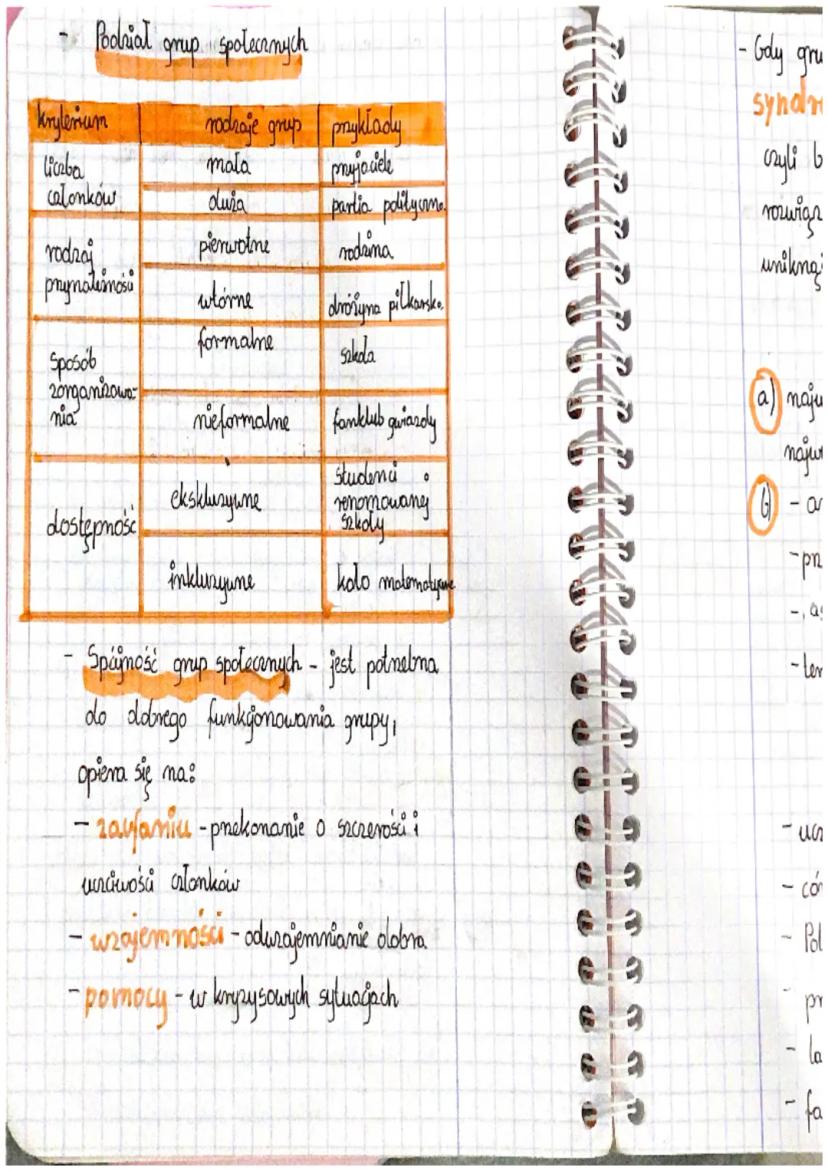 - Podział grup społecznych
kryterium rodzaje grup przykłady
liczba członków mała przyjaciele
duża partia polityczna
rodzaj przynależności pierwotne rodzina
wtórne drużyna piłkarska
sposób zorganizowa-
nia formalne szkoła
nieformalne fanklub gwiazdy
dostępność ekskluzywne studenci renomowanej szkoły
inkluzywne koło matematyczne
- Spójność grup społecznych - jest potrzebna
do dobrego funkcjonowania grupy,
opiera się na:
- zaufaniu - przekonanie o szczerości i
uczciwości członków
- wzajemności - odwzajemnianie dobra
- pomocy - w kryzysowych sytuacjach
- Gdy gru
syndr
czyli b
rozwiąz
uniknąć
a) najw
najw
b) - ar
- pr
- as
- ter
- ucz
- cór
- Pol
pr
- la
- fa